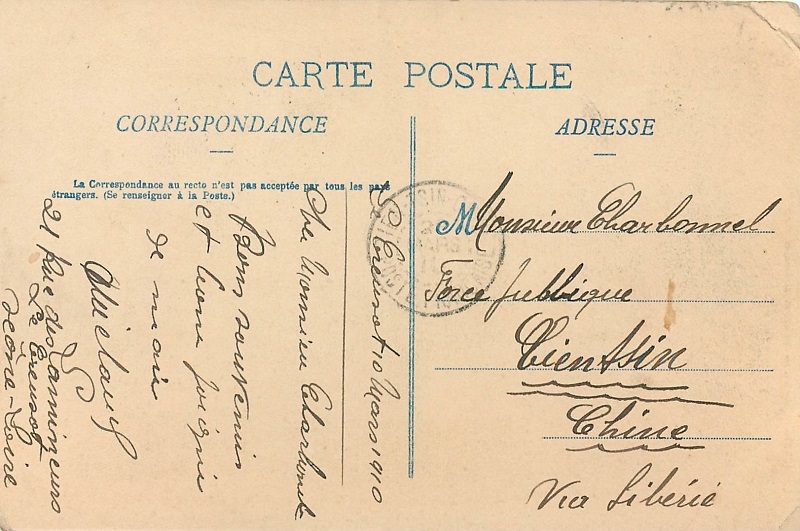 CARTE POSTALE
CORRESPONDANCE
La Correspondance au recto n'est pas acceptée par tous les pays
étrangers. (Se renseigner à la Poste.)
Le Creusot 10 Mars 1910
Cher Monsieur Charbonnel
Bons souvenirs
et bonne poignée
de main
21 Rue des Lamineurs
Le Creusot
Saône-Loire
ADRESSE
Monsieur Charbonnel
Force Publique
Tientsin
Chine
Via Sibérie